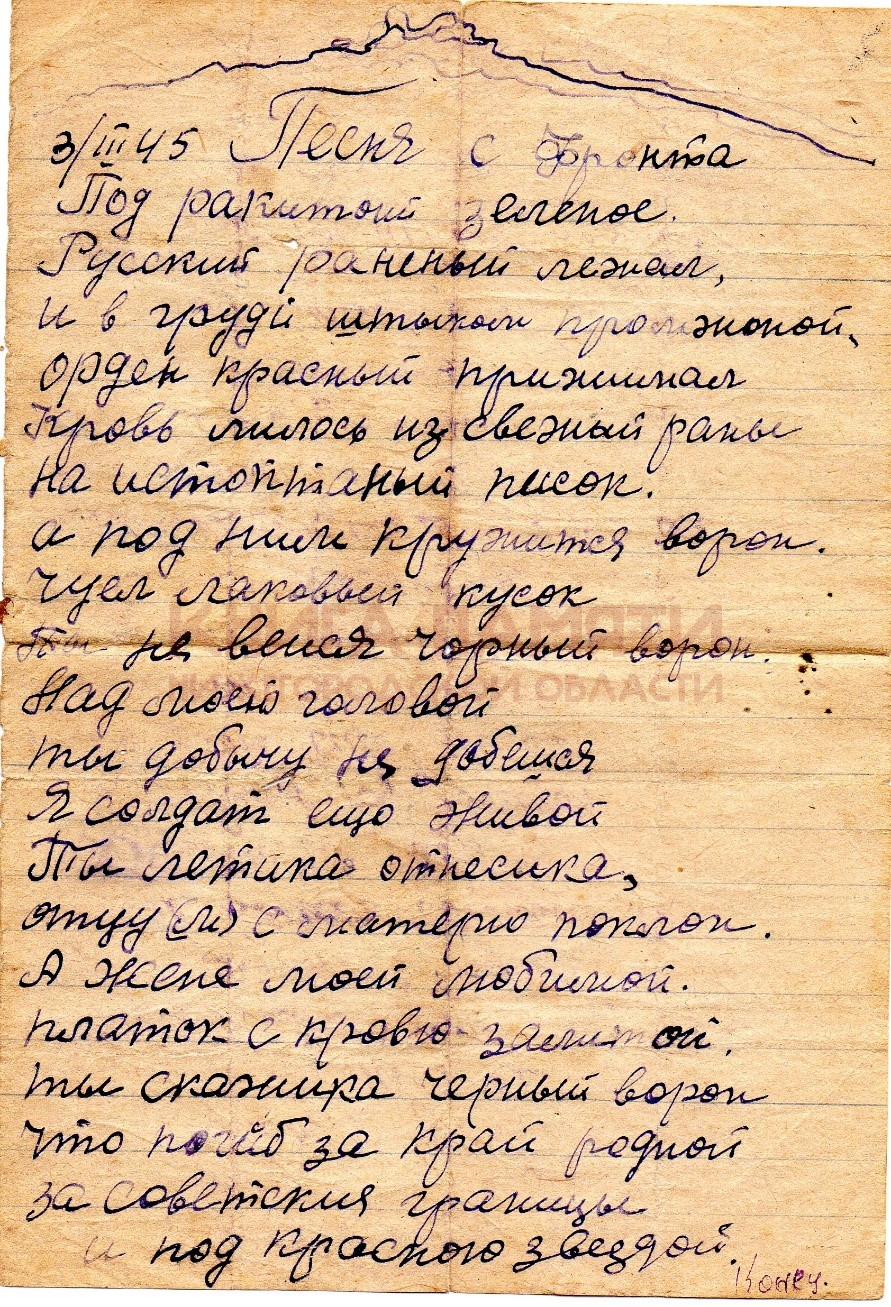 3/III 45 Песня с Фронта
Под ракитой зеленое.
Русский раненый лежал,
и в груди штыком промжоной,
орден красный прижимал
Кровь лилось из свежый раны
на истоптаный писок.
а под ним кружится ворон.
чуел лаковый кусок
КНИГА ПАМЯТИ
Ты не вейся чорный ворон.
НИЖЕГОРОДСКОЙ ОБЛАСТИ
Над моею головой
ты добычу не добешся
Я солдат ещо живой
Ты летика отнесика,
отцу (м) с матерю поклон.
А жене моей любимой.
платок с кровю залитой.
ты скажика черный ворон
что погиб за край родной
за советския границы
и под красною звездой.
Конец.